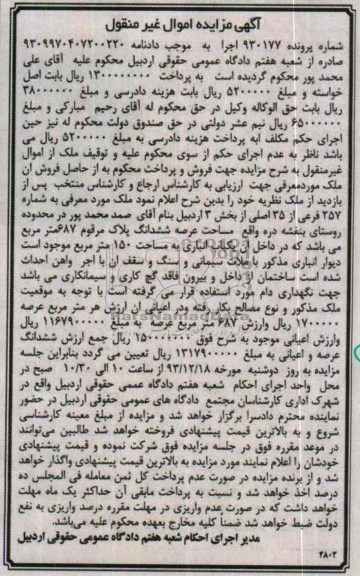 آگهی مزایده اموال غیر منقول
شماره پرونده ۹۳۰۱۷۷ اجرا به موجب دادنامه ۹۳۰۹۹۷۰۴۰۷۲۰۰۲۲۰
صادره از شعبه هفتم دادگاه عمومی حقوقی اردبیل محکوم علیه آقای علی
محمد پور محکوم گردیده است به پرداخت ۱۳۰۰۰۰۰۰۰ ریال بابت اصل
خواسته و مبلغ ۵۲۰۰۰۰۰ ریال بابت هزینه دادرسی و مبلغ ۳۸۰۰۰۰۰
ریال بابت حق الوکاله وکیل در حق محکوم له آقای رحیم مبارکی و مبلغ
۶۵۰۰۰۰۰ ریال نیم عشر دولتی در حق صندوق دولت محکوم له نیز حین
اجرای حکم مکلف به پرداخت هزینه دادرسی به مبلغ ۵۲۰۰۰۰۰ ریال می
باشد ناظر به عدم اجرای حکم از سوی محکوم علیه و توقیف ملک از اموال
غیرمنقول به شرح مزایده جهت فروش و پرداخت محکوم به از حاصل فروش آن
ملک موردمعرفی جهت ارزیابی به کارشناس ارجاع و کارشناس منتخب پس از
بازدید از ملک نظریه خود را بدین شرح اعلام نمود ملک مورد معرفی به شماره
۲۵۷ فرعی از ۳۵ اصلی از بخش ۳ اردبیل بنام آقای صمد محمد پور در محدوده
روستای بنفشه دره واقع مساحت عرصه ششدانگ پلاک مرقوم ۶۸۷متر مربع
می باشد که در داخل آن یکباب انباری به مساحت ۱۵۰ متر مربع موجود است
دیوار انباری مذکور با بلوک سیمانی و سنگ و سقف آن با آجر واهن احداث
شده است ساختمان از داخل و بیرون فاقد گچ کاری و سیمانکاری می باشد
جهت نگهداری دام مورد استفاده قرار می گرفته است با توجه به موقعیت
ملک مذکور و نوع مصالح بکار رفته در اعیانی آن ارزش هر متر مربع عرصه
۱۷۰۰۰۰ ریال وارزش ۶۸۷ متر مربع عرصه به مبلغ ۱۱۶۷۹۰۰۰۰ ریال
وارزش اعیانی موجود به شرح فوق ۱۵۰۰۰۰۰۰ ریال جمع ارزش ششدانگ
عرصه و اعیانی به مبلغ ۱۳۱۷۹۰۰۰۰ ریال تعیین می گردد بنابراین جلسه
مزایده به روز دوشنبه مورخه ۹۳/۱۲/۱۸ از ساعت ۱۰ الی ۱۰/۳۰ صبح در
محل واحد اجرای احکام شعبه هفتم دادگاه عممی حقوقی اردبیل واقع در
شهرک اداری کارشناسان مجتمع دادگاه های عمومی حقوقی اردبیل در حضور
نماینده محترم دادسرا برگزار خواهد شد و مزایده از مبلغ معینه کارشناسی
شروع و به بالاترین قیمت پیشنهادی فروخته خواهد شد طالبین می‌توانند
در موعد مقرره فوق در جلسه مزایده فوق شرکت نموده و قیمت پیشنهادی
خودشان را اعلام نمایند مورد مزایده به بالاترین قیمت پیشنهادی واگذار خواهد
شد و از برنده مزایده در صورت عدم پرداخت کل ثمن معامله فی المجلس ده
درصد اخذ خواهد شد و نسبت به پرداخت مابقی آن حداکثر یک ماه مهلت
خواهد داشت که در صورت عدم واریزی در مهلت مقرره درصد واریزی به نفع
دولت ضبط خواهد شد ضمنا کلیه مخارج بعهده محکوم علیه می‌باشد.
مدیر اجرای احکام شعبه هفتم دادگاه عمومی حقوقی اردبیل
۲۸۰۲